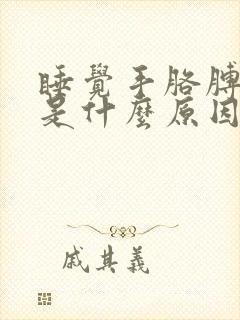 睡覺手胳膊
是什麼原因
戚其義